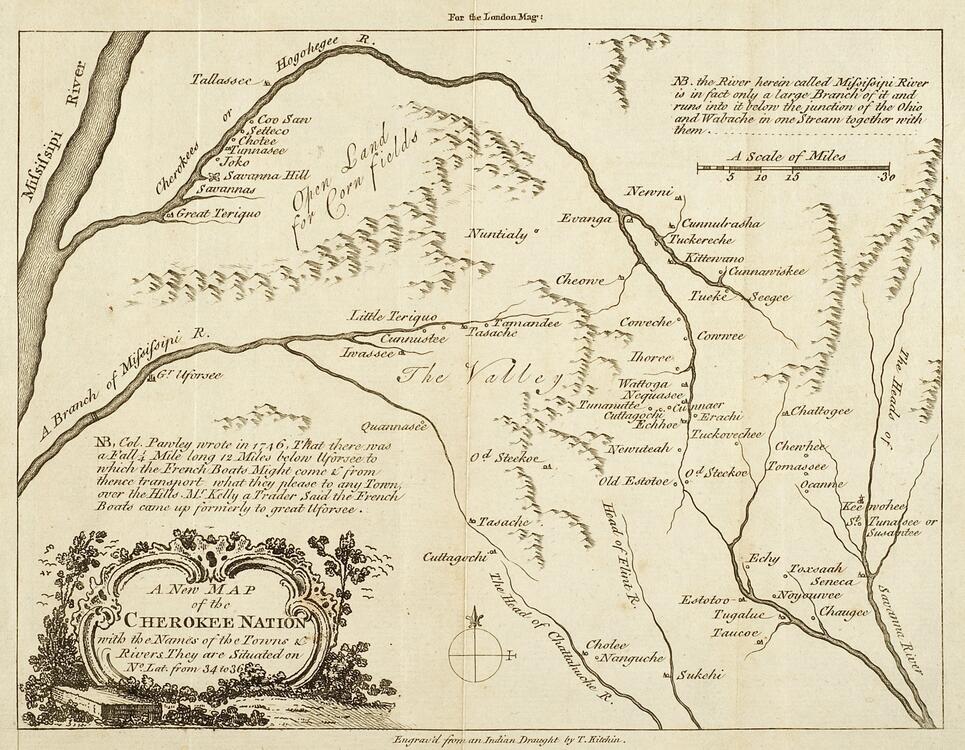 For the London Mag:
Hogohegee R.
Missisipi River
Tallassee
or
Cherokees
Cov Saw
Setteco
Chotee
Tunnasee
Toko
Savanna Hill
Savannas
Great Teriquo
Open Land
for Corn fields
NB. the River herein called Missisipi River
is in fact only a large Branch of it and
runs into it below the junction of the Ohio
and Wabache in one Stream together with
them
A Scale of Miles
5 10 15 30
Newni
Evanga
Cunnulrasha
Tuckereche
Nuntialy
Kittewano
Cunnawiskee
Cheowe
Tueke
Seegee
Little Teriquo
Tamandee
Tasache
Cunnustee
Iwassee
Coweche
Cowwee
Ihoree
The Valley
Wattoga
Nequasee
Tunanutte
Cunnaer
Cuttagochi
Erachi
Echhoe
Tuckovechee
Newuteah
Old Estotoe
Od. Steekoe
Od. Steekoe
A Branch of Missisipi R.
Gt. Uforsee
Quannasee
NB, Col. Pawley wrote in 1746, That there was
a Fall ¼ Mile long 12 Miles below Uforsee to
which the French Boats Might come & from
thence transport what they please to any Town,
over the Hills. Mr. Kelly a Trader Said the French
Boats came up formerly to great Uforsee.
Chattogee
Chewhee
Tomassee
Oeanne
Keewohee
St. Tunasee or
Susantee
The Head of
Savanna River
Tasache
Cuttagochi
Head of Flint R.
The Head of Chattahuche R.
Echy
Toxsaah
Seneca
Noyouvee
Estotoo
Chaugee
Tugaluc
Taucoe
Cholee
Nanguche
Sukehi
A New MAP
of the
CHEROKEE NATION
with the Names of the Towns &
Rivers. They are Situated on
No. Lat. from 34 to 36
Engrav'd from an Indian Draught by T. Kitchin.